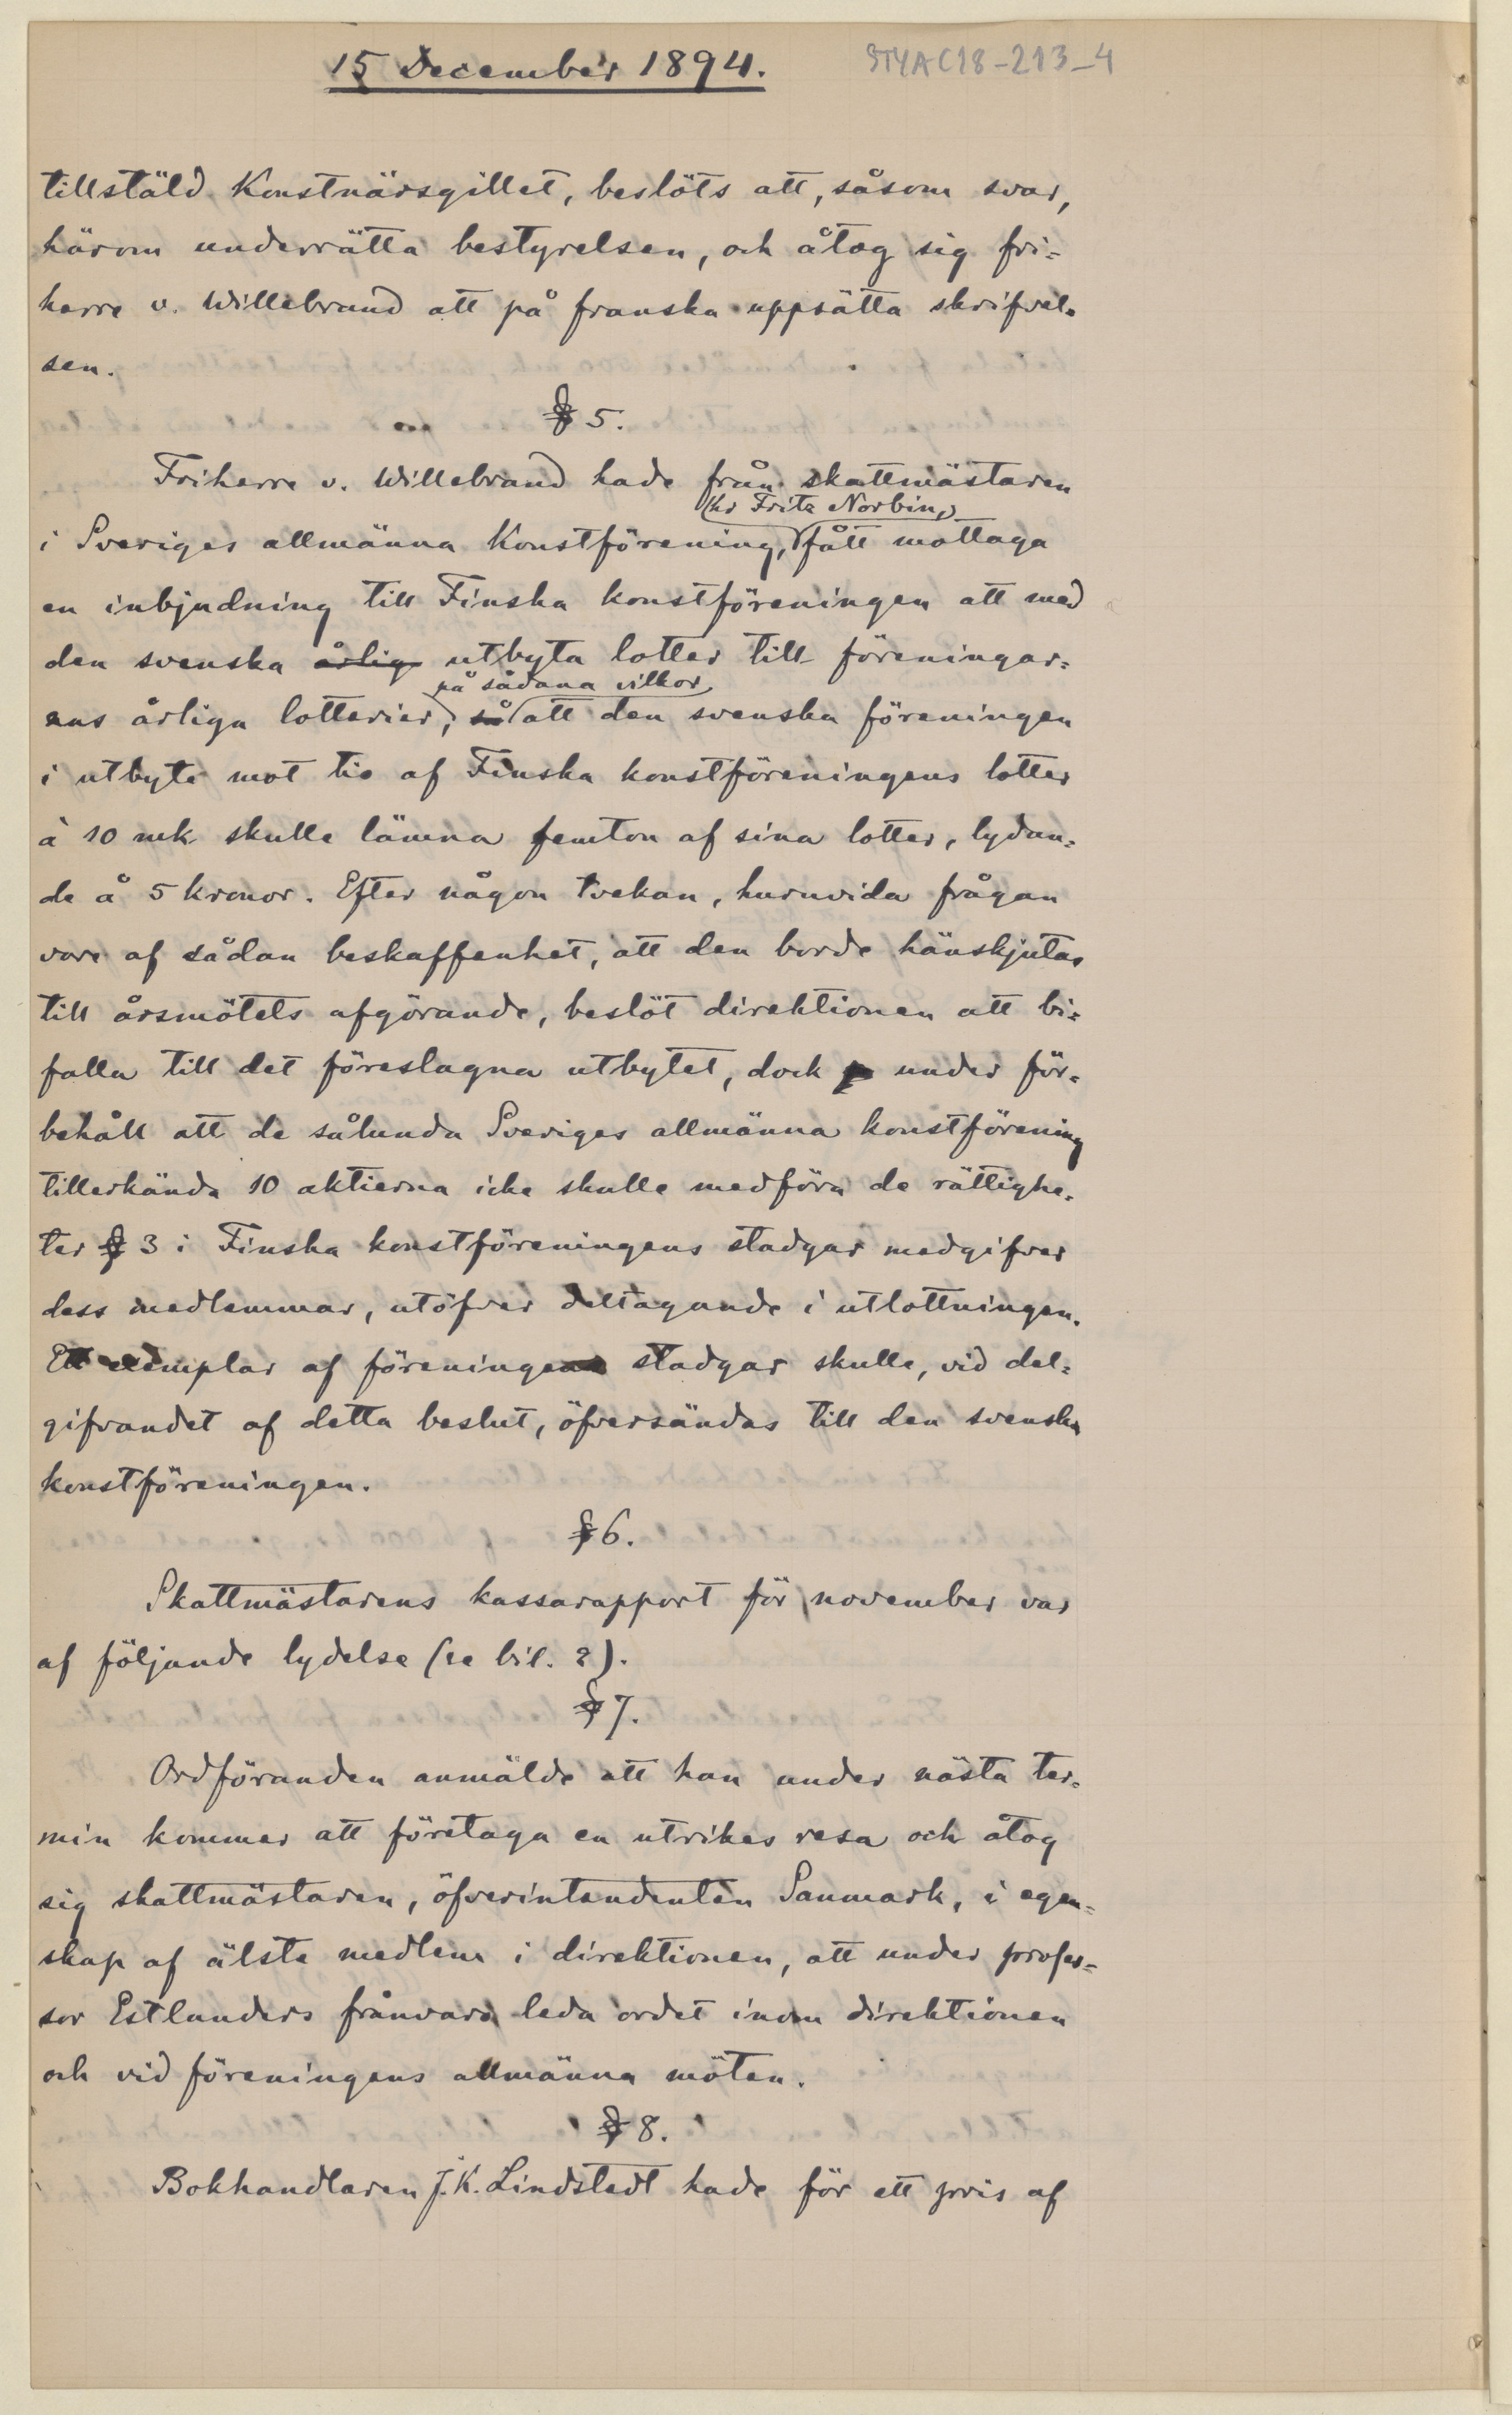 15 December 1894.
STYAC18-213_4
tillstäld Konstnärsgillet, beslöts att, såsom svar,
härom underrätta bestyrelsen, och åtog sig fri=
herre v. Willebrand att på franska uppsätta skrifvel=
sen.
§ 5.
Friherre v. Willebrand hade från skattmästaren
(hr Fritz Norbin,)
i Sveriges allmänna Konstförening, fått mottaga
en inbjudning till Finska konstföreningen att med
den svenska årlig utbyta lotter till föreningar=
på sådana vilkor
nas årliga lotterier, så att den svenska föreningen
i utbyte mot tio af Finska konstföreningens lotter
à 10 mk skulle lämna femton af sina lotter, lydan=
de å 5 kronor. Efter någon tvekan, huruvida frågan
vore af sådan beskaffenhet, att den borde hänskjutas
till årsmötets afgörande, beslöt direktionen att bi=
falla till det föreslagna utbytet, dock under för=
behåll att de sålunda Sveriges allmänna konstförening
tillerkända 10 aktierna icke skulle medföra de rättighe=
ter § 3 i Finska konstföreningens stadgar medgifver
dess medlemmar, utöfver deltagande i utlottningen.
Ett exemplar af föreningens stadgar skulle, vid del=
gifvandet af detta beslut, öfversändas till den svenska
konstföreningen.
§ 6.
Skattmästarens kassarapport för november var
af följande lydelse (se bil. 2).
§ 7.
Ordföranden anmälde att han under nästa ter=
min kommer att företaga en utrikes resa och åtog
sig skattmästaren, öfverintendenten Sanmark, i egen=
skap af älste medlem i direktionen, att under profes=
sor Estlanders frånvaro leda ordet inom direktionen
och vid föreningens allmänna möten.
§ 8.
Bokhandlaren J.K. Lindstedt hade för ett pris af